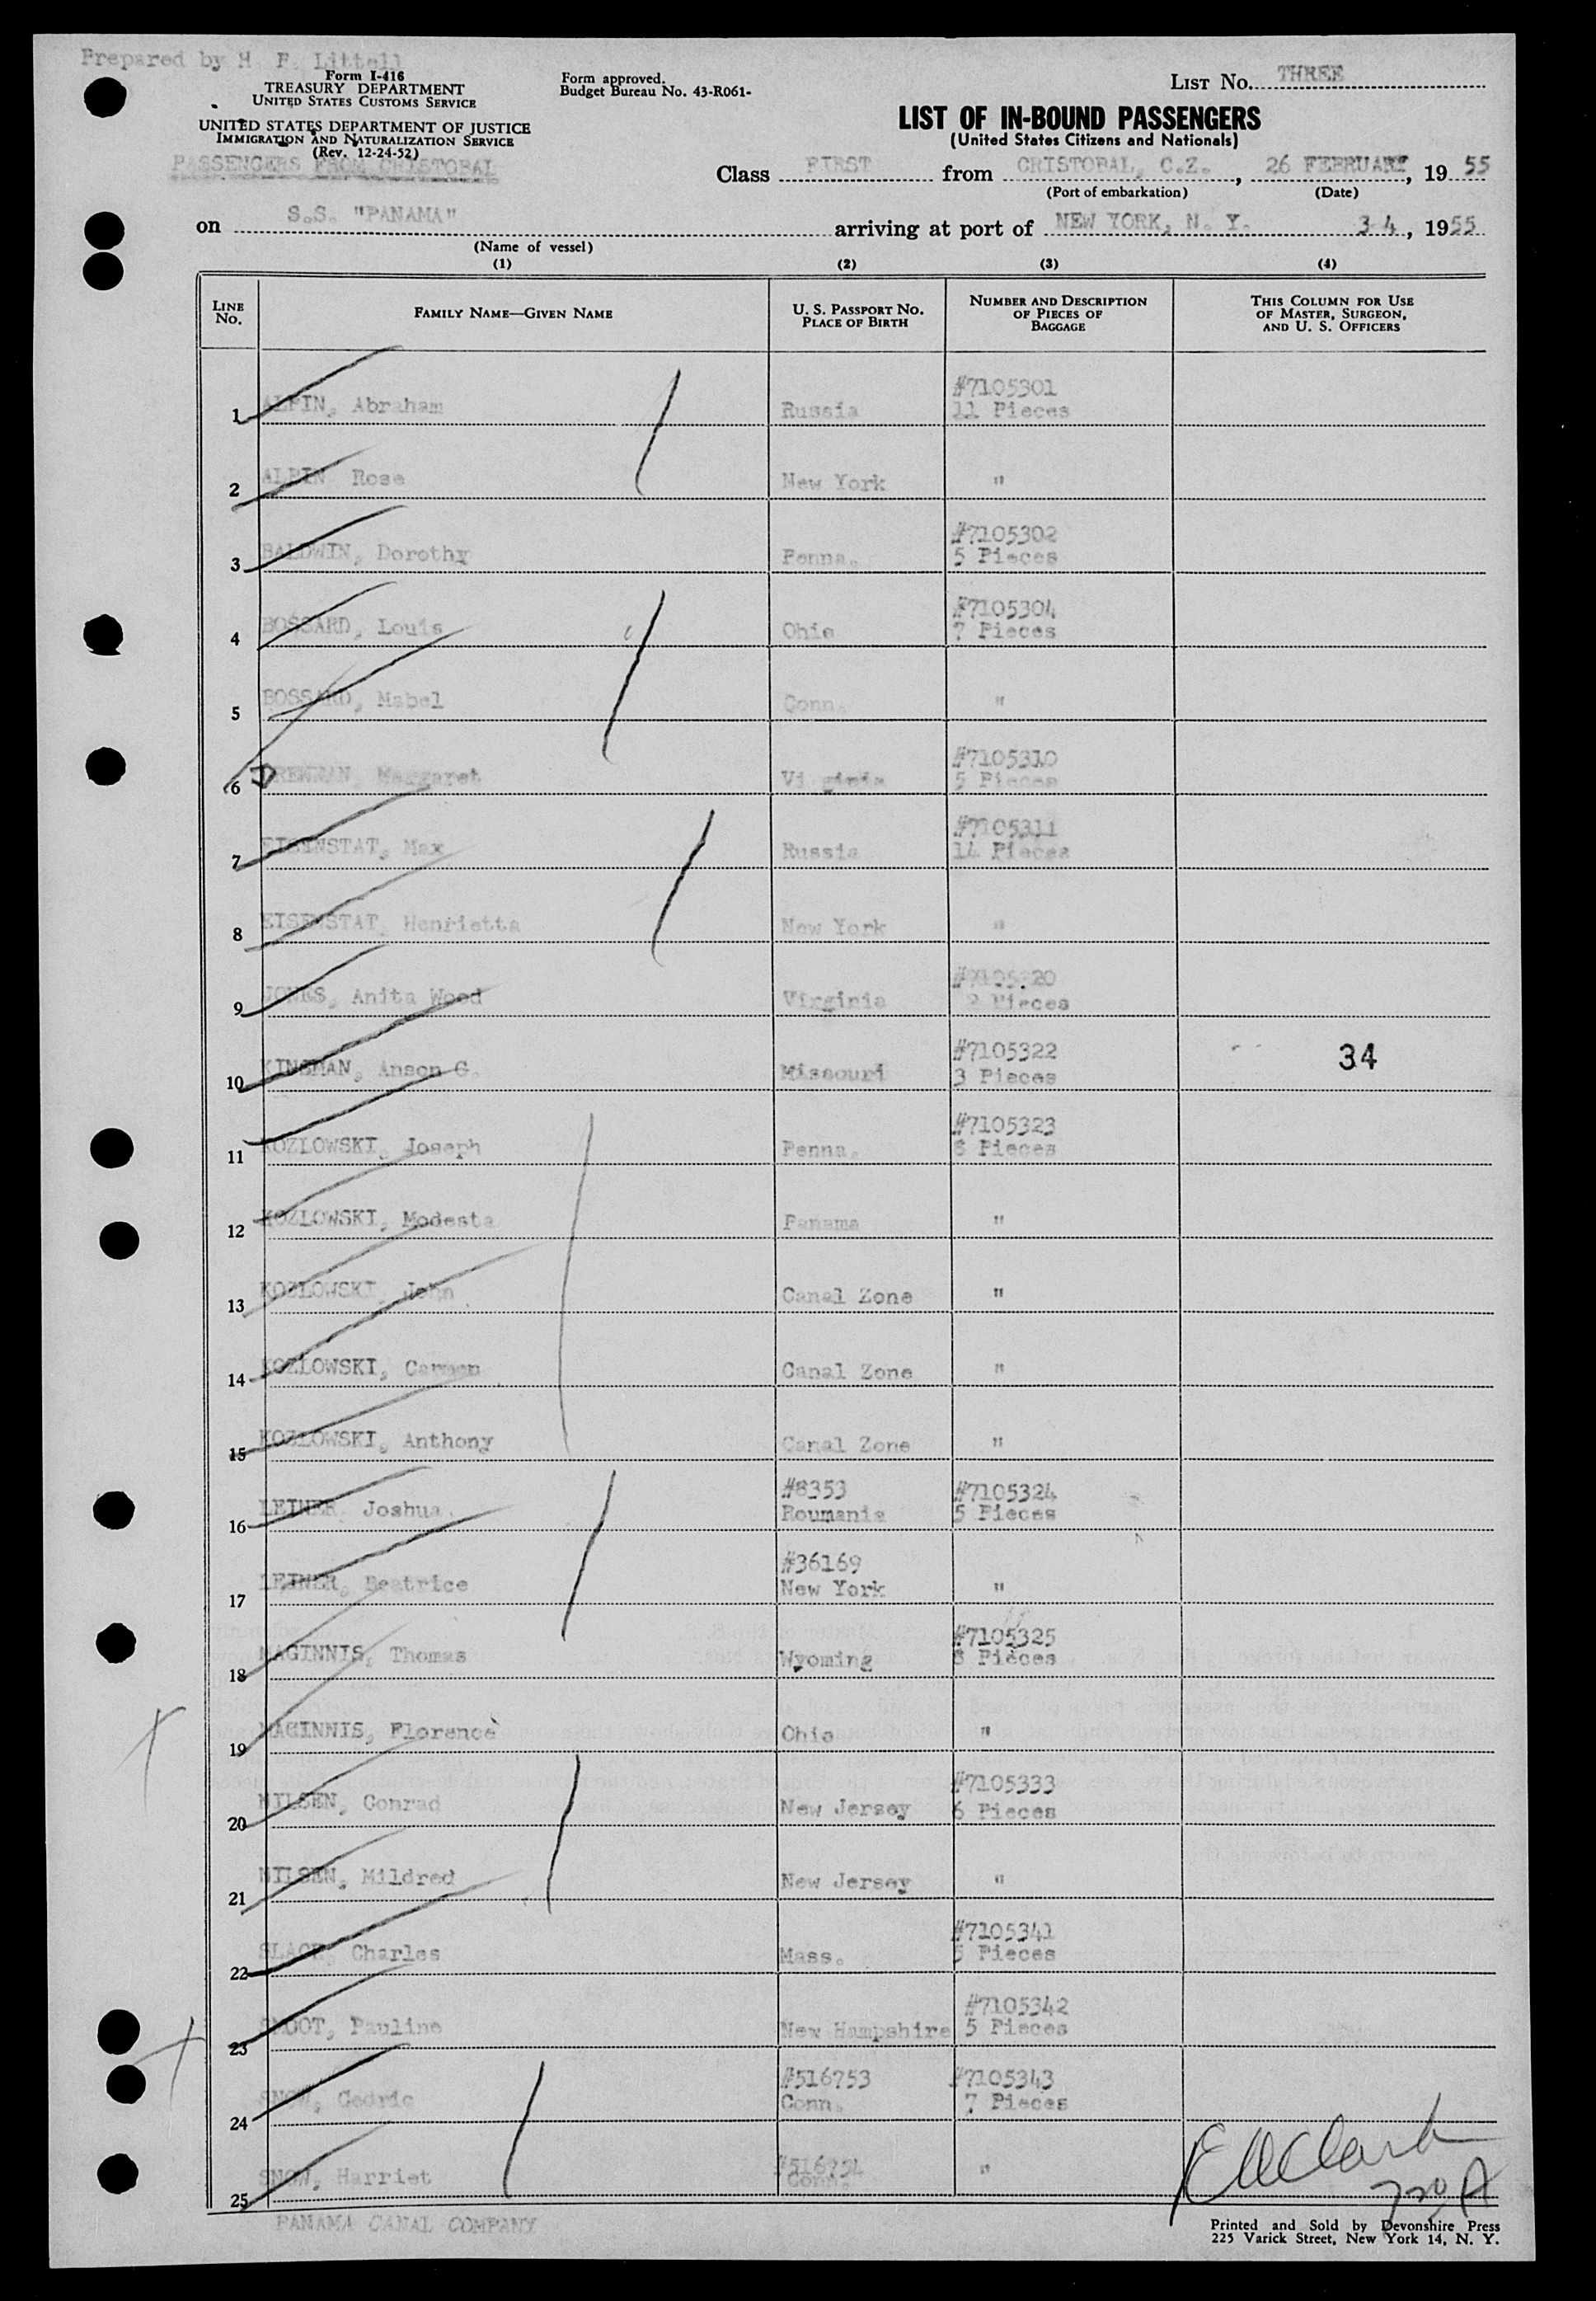 Prepared by H. F. Littell
Form I-416
TREASURY DEPARTMENT
UNITED STATES CUSTOMS SERVICE
UNITED STATES DEPARTMENT OF JUSTICE
IMMIGRATION AND NATURALIZATION SERVICE
(Rev. 12-24-52)
PASSENGERS FROM CRISTOBAL
Form approved.
Budget Bureau No. 43-R061-
LIST NO. THREE
LIST OF IN-BOUND PASSENGERS
(United States Citizens and Nationals)
Class FIRST from CRISTOBAL, C.Z., 26 FEBRUARY, 1955
(Port of embarkation) (Date)
on S.S. "PANAMA" arriving at port of NEW YORK, N. Y. 3-4, 1955
(Name of vessel)
(1) (2) (3) (4)
LINE NO. FAMILY NAME—GIVEN NAME U. S. PASSPORT NO. PLACE OF BIRTH NUMBER AND DESCRIPTION OF PIECES OF BAGGAGE THIS COLUMN FOR USE OF MASTER, SURGEON, AND U. S. OFFICERS
#7105301
1 ALPIN, Abraham Russia 11 Pieces
2 ALPIN Rose New York "
#7105302
3 BALDWIN, Dorothy Penna. 5 Pieces
#7105304
4 BOSSARD, Louis Ohio 7 Pieces
5 BOSSARD, Mabel Conn. "
#7105310
6 Margaret Virginia 5 Pieces
#7105311
7 EISINSTAT, Max Russia 14 Pieces
8 EISENSTAT, Henrietta New York "
9 JONES, Anita Wood Virginia 2 Pieces
#7105322
10 KINSMAN, Anson G. Missouri 3 Pieces 34
#7105323
11 KOZLOWSKI, Joseph Penna. 8 Pieces
12 KOZLOWSKI, Modesta Panama "
13 KOZLOWSKI, John Canal Zone "
14 KOZLOWSKI, Carmen Canal Zone "
15 KOZLOWSKI, Anthony Canal Zone "
#8353 #7105324
16 LEINER, Joshua Roumania 5 Pieces
#36169
17 LEINER, Beatrice New York "
#7105325
18 MAGINNIS, Thomas Wyoming 8 Pieces
19 MAGINNIS, Florence Ohio "
#7105333
20 NILSEN, Conrad New Jersey 6 Pieces
21 NILSEN, Mildred New Jersey "
#7105341
22 SLACK, Charles Mass. 5 Pieces
#7105342
23 SMOOT, Pauline New Hampshire 5 Pieces
#516753 #7105343
24 SNOW, Cedric Conn. 7 Pieces
#516754
25 SNOW, Harriet Conn. "
PANAMA CANAL COMPANY
Printed and Sold by Devonshire Press
225 Varick Street, New York 14, N. Y.